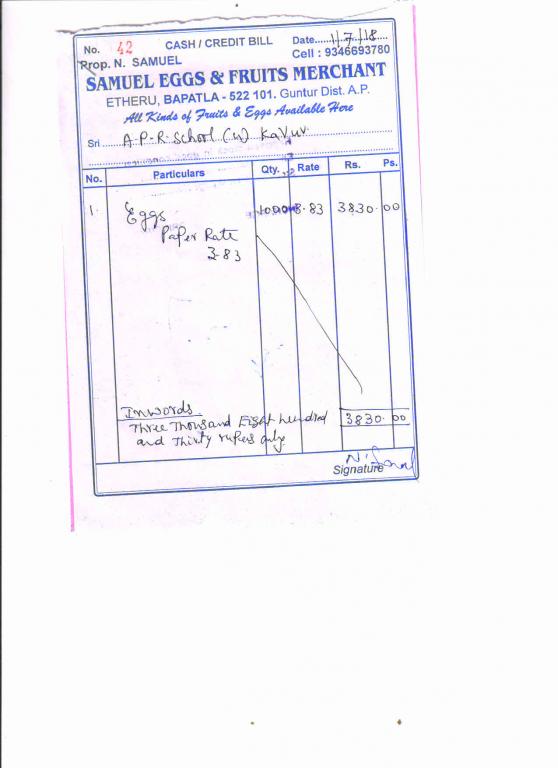 No. 42 CASH / CREDIT BILL Date.....1/7/18.....
Prop. N. SAMUEL Cell : 9346693780
SAMUEL EGGS & FRUITS MERCHANT
ETHERU, BAPATLA - 522 101. Guntur Dist. A.P.
All Kinds of Fruits & Eggs Available Here
Sri A.P.R. School (u) Kavur
No. Particulars Qty. Rate Rs. Ps.
1. Eggs 1000 3.83 3830. 00
Paper Rate
3-83
Inwords
Three Thousand Eight hundred 3830. 00
and Thirty rupees only.
Signature